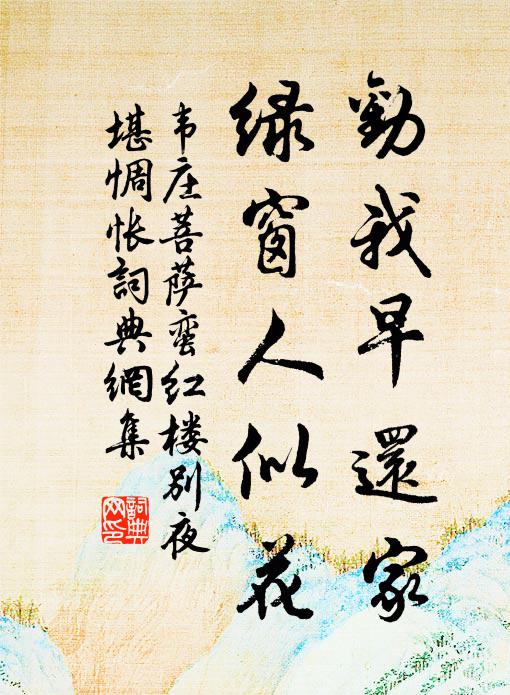 勸我早還家
绿窗人似花
韦庄菩萨蛮红楼别夜
堪惆怅詞典網集
詞典网印